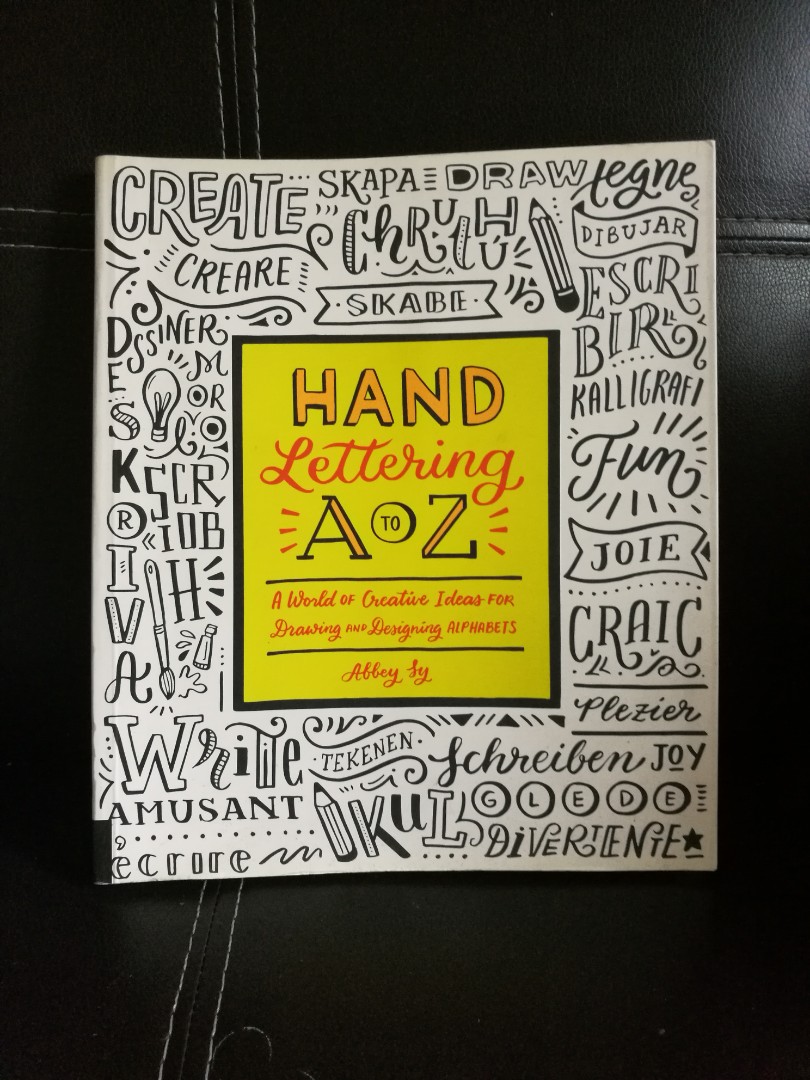 CREATE
SKAPA
DRAW
tegne
CREARE
ChRutHÚ
DIBUJAR
SKABE
ESCRI
BIR
DESSINER
DESKRIVA
SCR
IOB
H
KALLIGRAFI
Fun
JOIE
CRAIC
Plezier
HAND
Lettering
A TO Z
A World OF Creative Ideas FOR
Drawing AND Designing ALPHABETS
Abbey Sy
WRiTe
TEKENEN
Schreiben
JOY
AMUSANT
KUL
GLEDE
écrire
DIVERTENTE